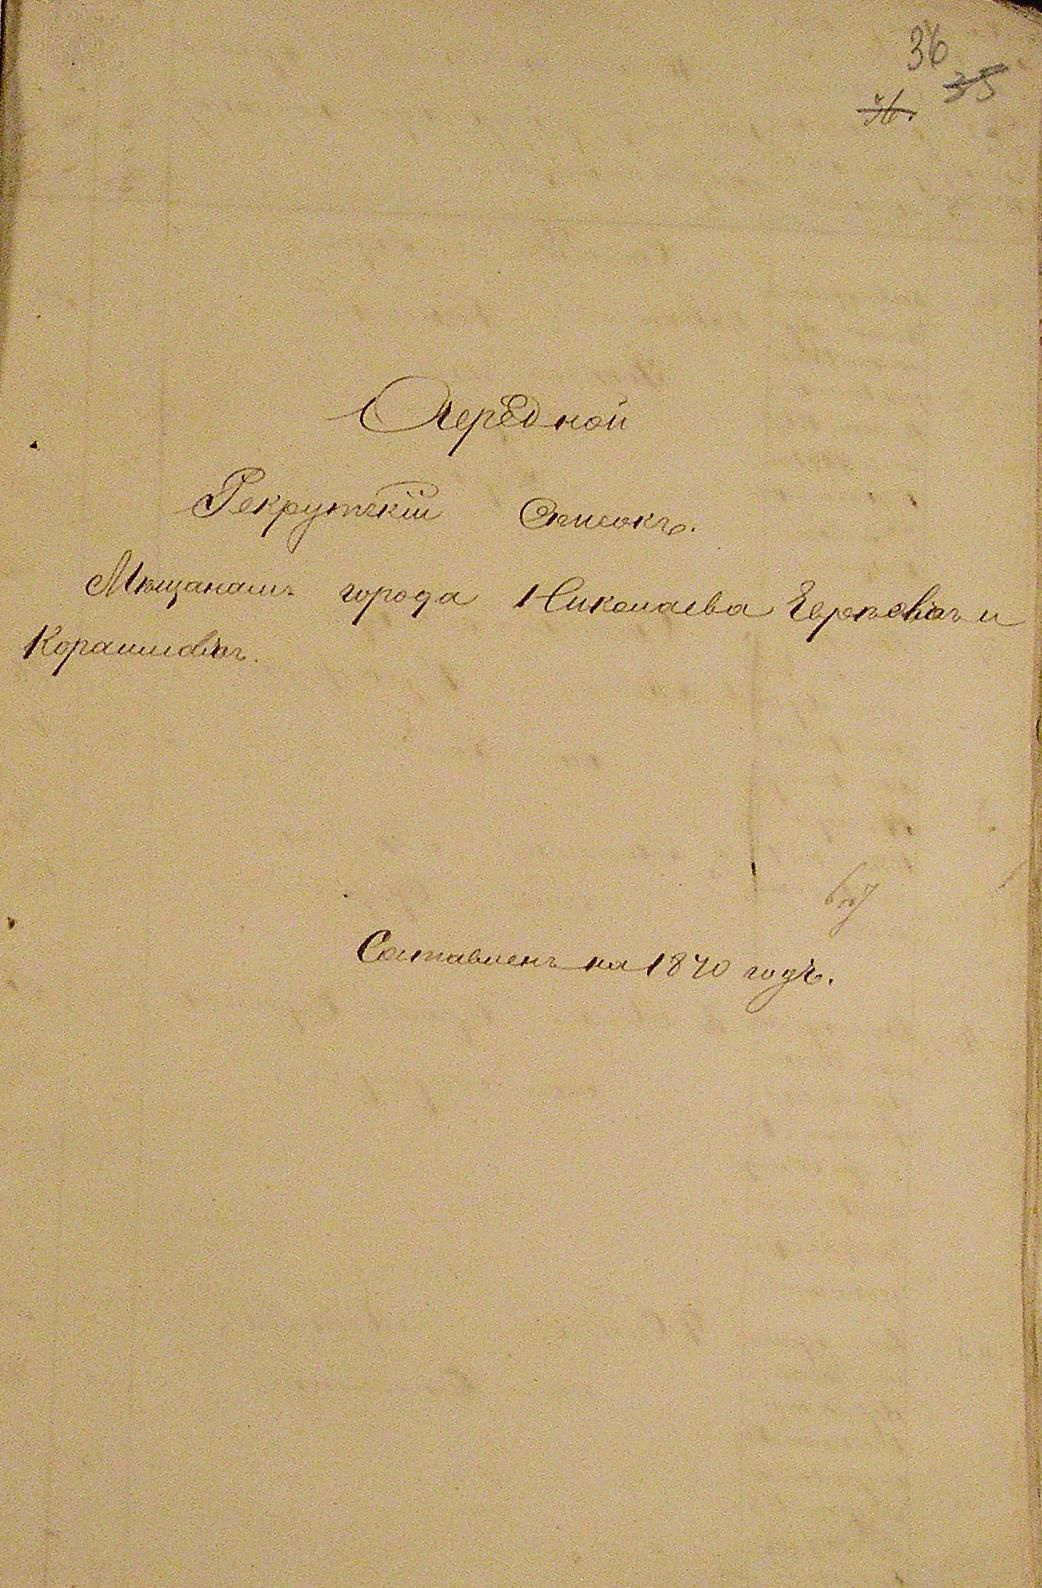 36
35
36.
Очередной
Рекрутскій Списокъ.
Мѣщанамъ города Николаева Евреевъ и
Караимовъ.
Составленъ на 1870 годъ.